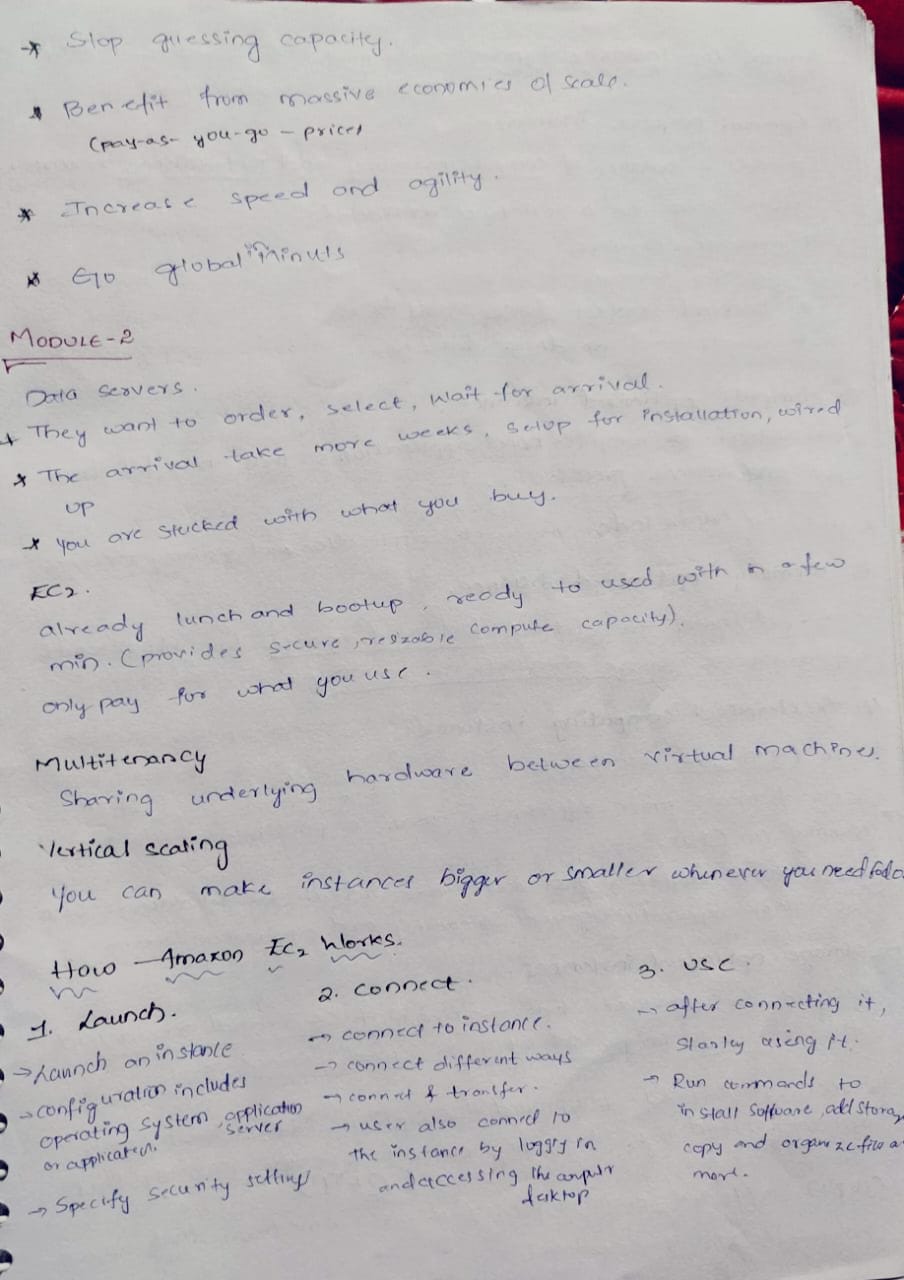 * Stop guessing capacity.
* Benefit from massive economies of scale.
(pay-as-you-go-prices
* Increase speed and agility.
* Go global in minuts
MODULE-2
Data servers.
* They want to order, select, wait for arrival.
* The arrival take more weeks, setup for installation, wired
up
* you are stucked with what you buy.
EC2.
already lunch and bootup, ready to used with in a few
min. (provides secure, reszable compute capacity).
only pay for what you use.
Multitenancy
Sharing underlying hardware between virtual machines.
Vertical scaling
You can make instances bigger or smaller whenever you need
How Amazon EC2 Works.
1. Launch.
→ Launch an instance
→ configuration includes
operating system, application
server
or application.
→ Specify security settings
2. Connect.
→ connect to instance.
→ connect different ways
→ connect & transfer.
→ user also connect to
the instance by logging in
and accessing the
desktop
3. use.
→ after connecting it,
using it.
→ Run commands to
install software, add
copy and organize file
more.